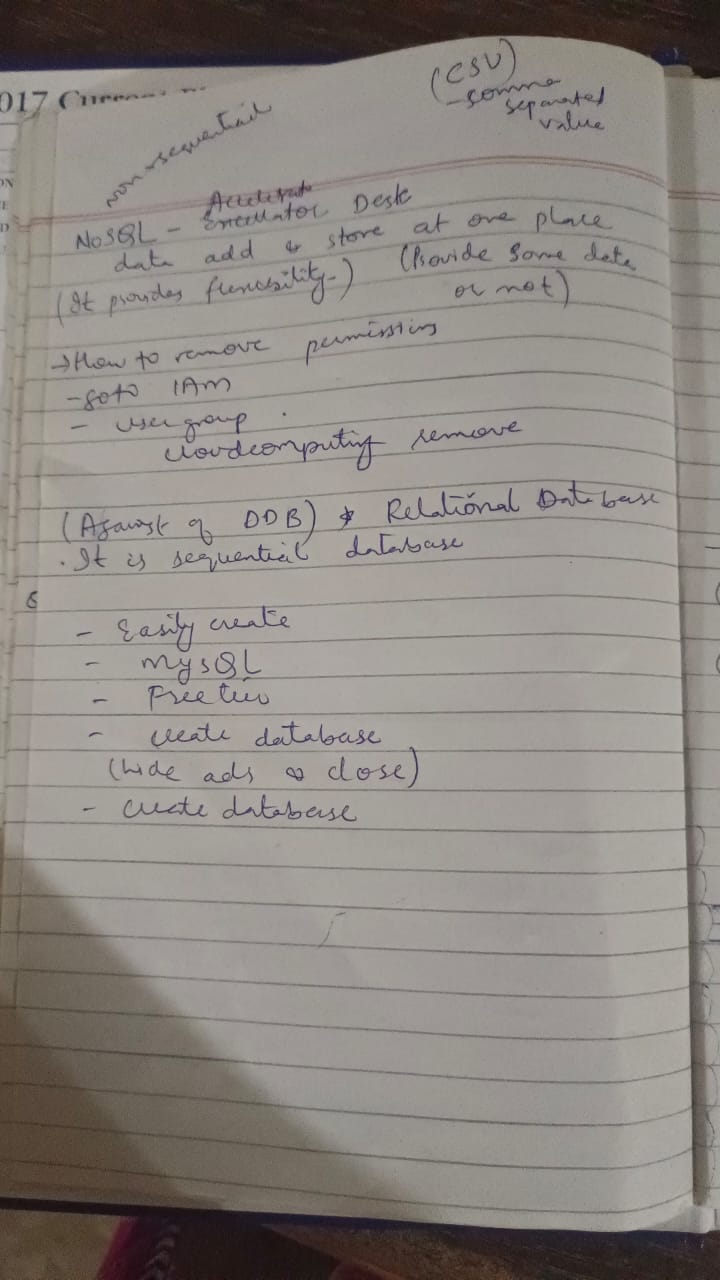 2017
(CSV)
- comma
separated
value
non-sequential
NoSQL - Desk
data add & store at one place
(It provides (Provide some data
or not)
→ How to remove permissions
- goto IAM
- user group
cloudcomputing remove
(Against of DDB) & Relational Database
. It is sequential database
6
- Easily create
- MySQL
- Free tier
- create database
(hide ads close)
- create database